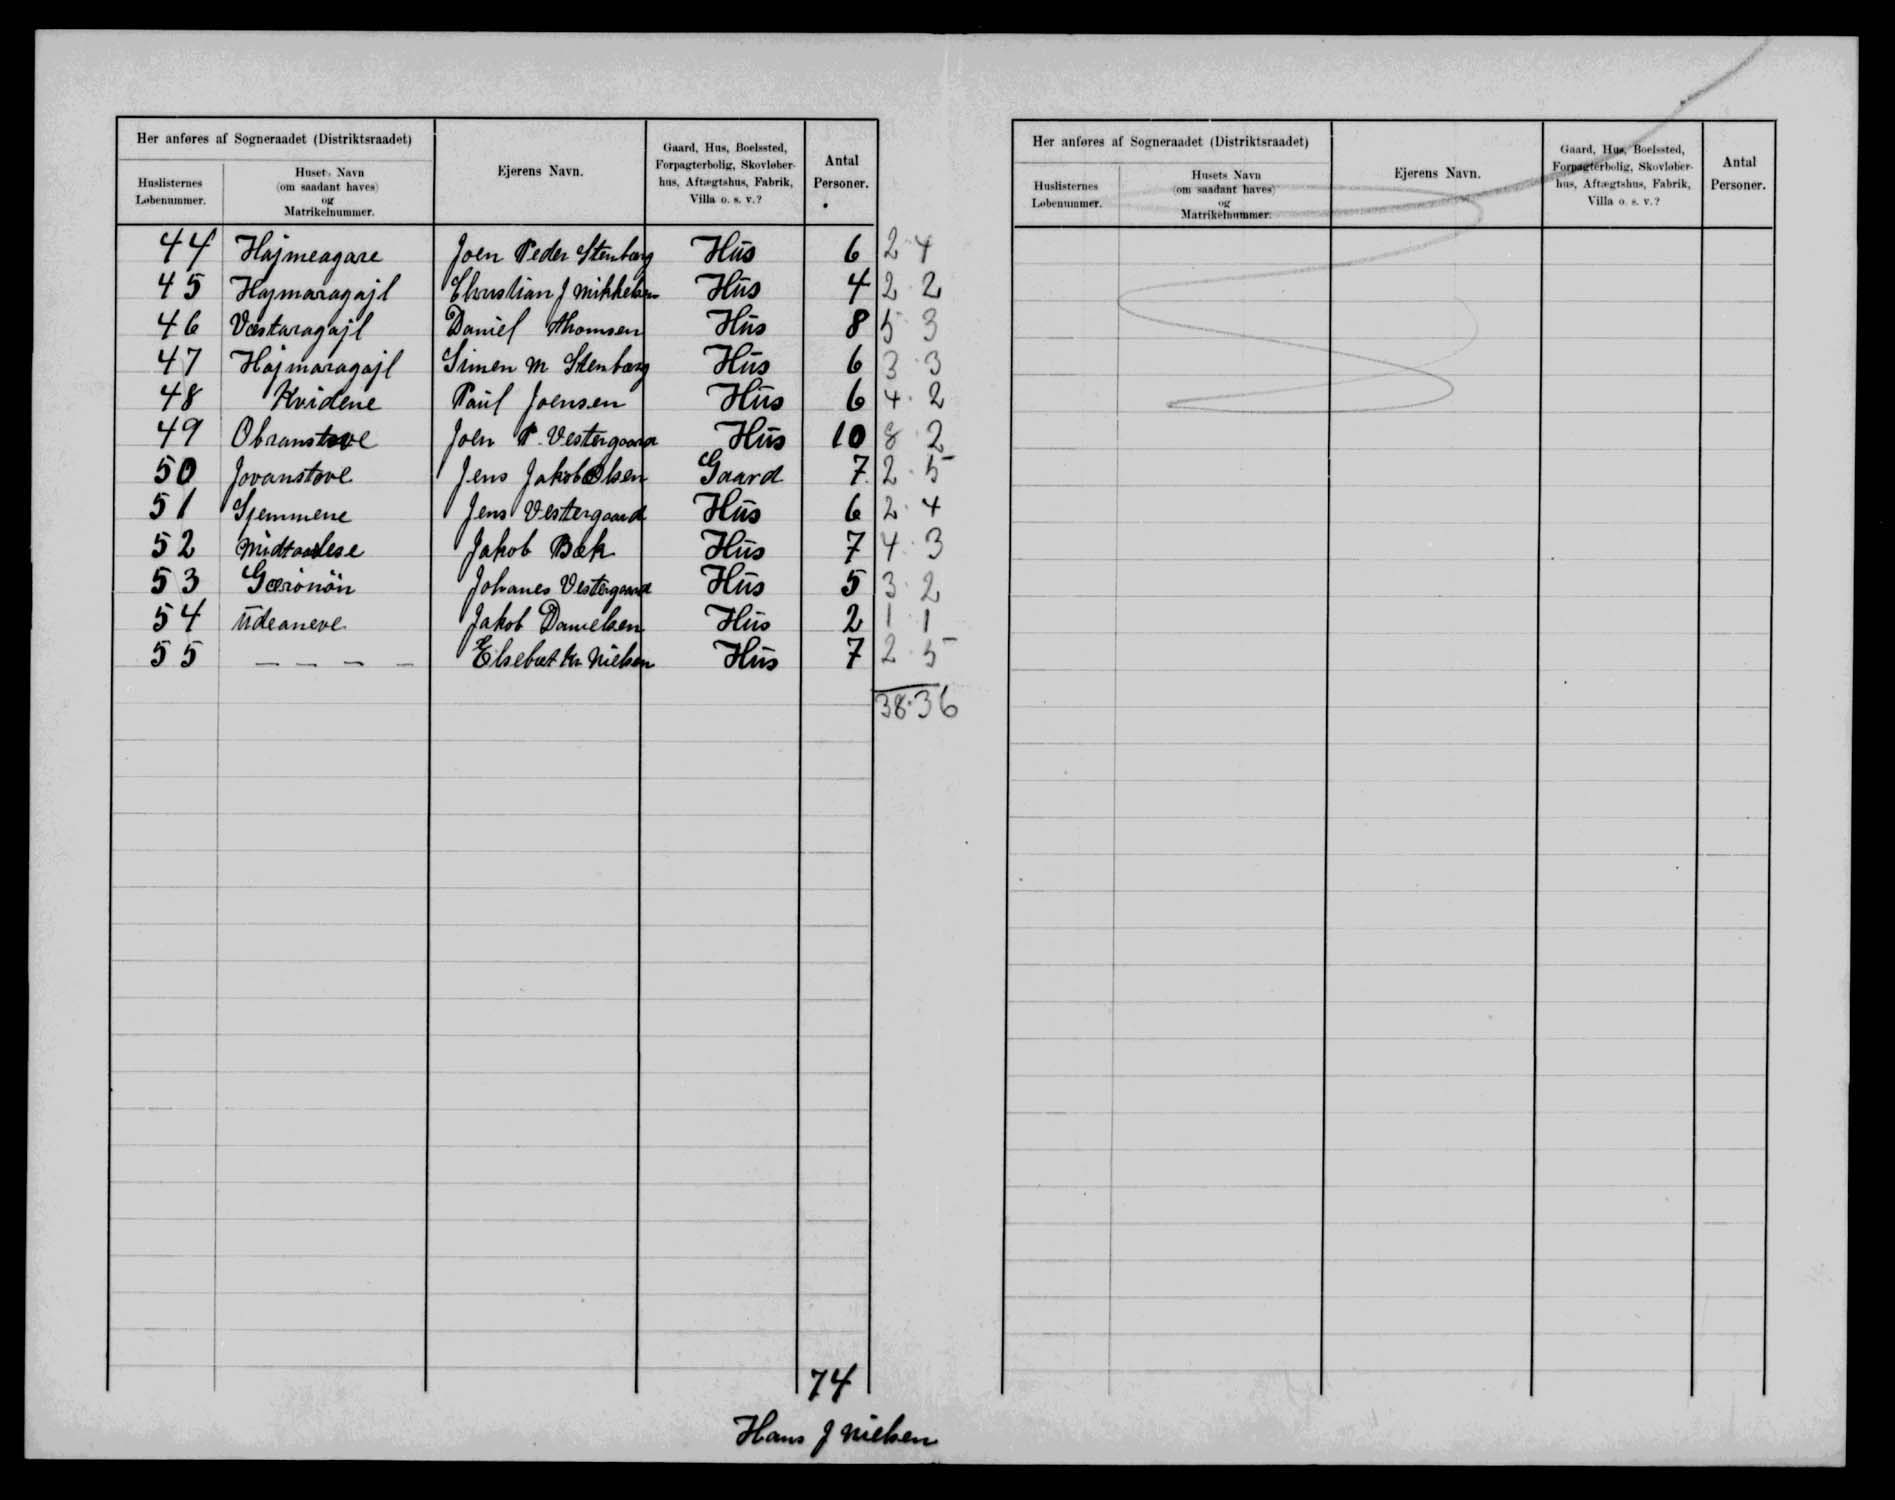 Her anføres af Sogneraadet (Distriktsraadet)
Huslisternes Løbenummer.
Husets Navn (om saadant haves) og Matrikelnummer.
Ejerens Navn.
Gaard, Hus, Boelssted, Forpagterbolig, Skovløberhus, Aftægtshus, Fabrik, Villa o. s. v.?
Antal Personer.
44 Højmeagare Joen Peder Stenberg Hus 6 2 · 4
45 Hojmaragajl Christian J Mikkelsen Hus 4 2 2
46 Væstaragajl Daniel Thomsen Hus 8 5 · 3
47 Højmaragajl Simen M Stenberg Hus 6 3 · 3
48 Kvidene Paul Joensen Hus 6 4 · 2
49 Obranstove Joen P. Vestergaard Hus 10 8 2
50 Jovanstove Jens Jakob Olsen Gaard 7 2 · 5
51 Sjemmene Jens Vestergaard Hus 6 2 · 4
52 Jakob Bæk Hus 7 4 · 3
53 Gærönön Johanes Vestergaard Hus 5 3 · 2
54 Udeaneve Jakob Danielsen Hus 2 1 · 1
55 — — — — Elsebet Kr. Nielsen Hus 7 2 · 5
38 · 36
74
Hans J Nielsen
Her anføres af Sogneraadet (Distriktsraadet)
Huslisternes Løbenummer.
Husets Navn (om saadant haves) og Matrikelnummer.
Ejerens Navn.
Gaard, Hus, Boelssted, Forpagterbolig, Skovløberhus, Aftægtshus, Fabrik, Villa o. s. v.?
Antal Personer.